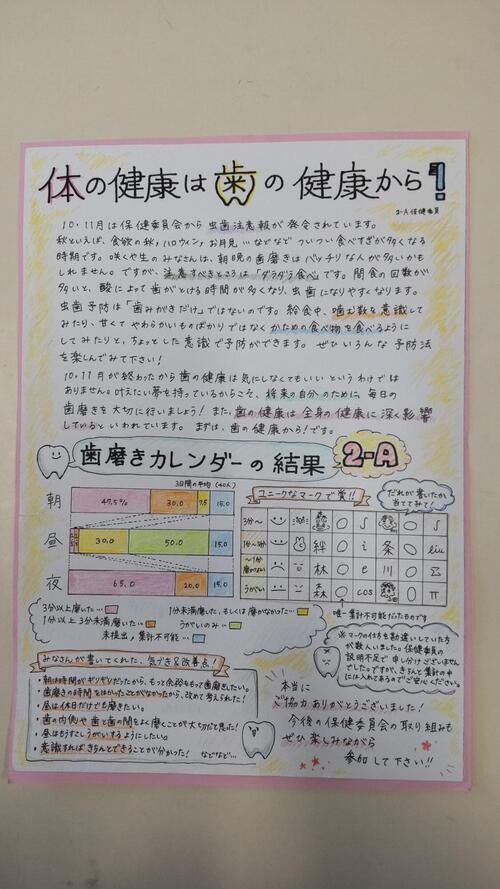 体の健康は歯の健康から!
2-A 保健委員
10・11月は保健委員会から虫歯注意報が発令されています。
秋といえば、食欲の秋、ハロウィン、お月見…などなど ついつい食べすぎが多くなる
時期です。咲くや生のみなさんは、朝晩の歯磨きはバッチリな人が多いかも
しれません。ですが、注意すべきところは「ダラダラ食べ」です。間食の回数が
多いと、酸によって歯がとける時間が多くなり、虫歯になりやすくなります。
虫歯予防は「歯みがきだけ」ではないのです。給食中、噛む数を意識して
みたり、甘くてやわらかいものばかりではなくかための食べ物を食べるように
してみたりと、ちょっとした意識で予防ができます。ぜひいろんな予防法
を楽しんでみて下さい!
10・11月が終わったから歯の健康は気にしなくてもいいというわけでは
ありません。叶えたい夢を持っているからこそ、将来の自分のために、毎日の
歯磨きを大切に行いましょう! また、歯の健康は全身の健康に深く影響
しているといわれています。まずは、歯の健康から!です。
歯磨きカレンダーの結果 2-A
3日間の平均(40人)
朝 47.5% 30.0 7.5 15.0
昼 30.0 50.0 15.0
夜 65.0 20.0 15.0
3分以上磨いた…
1分以上3分未満磨いた…
1分未満磨いた、もしくは磨かなかった…
うがいのみ…
未提出、集計不可能…
ユニークなマークで賞!!
だれが書いたか、
当ててみて!
3分〜 ○ ∫ ○ ∫
1分〜3分 絆 ○ i 条 ○
〜1分
磨かない 林 ○ e 川 ○ Σ
うがい 森 ○ cos ○ π
唯一集計不可能だったものです
※マークの仕方を勘違いしていた方
が数人いました。保健委員の
説明不足で申し訳ございません
でした。ですが、きちんと集計の中
には入れてあるのでご安心ください。
みなさんが書いてくれた、気づき&改善点!
・朝は時間がギリギリだったから、もっと余裕をもって歯磨きしたい。
・歯磨きの時間をはかったことがなかったから、改めて考えられた!
・昼は休日だけでも磨きたい。
・歯の内側や歯と歯の間をよく磨くことが大切だと思った!
・昼はもうすこしうがいするようにしたい。
・意識すればきちんとできることが分かった! などなど…
本当に
ご協力ありがとうございました!
今後の保健委員の取り組みも
ぜひ楽しみながら
参加して下さい!!